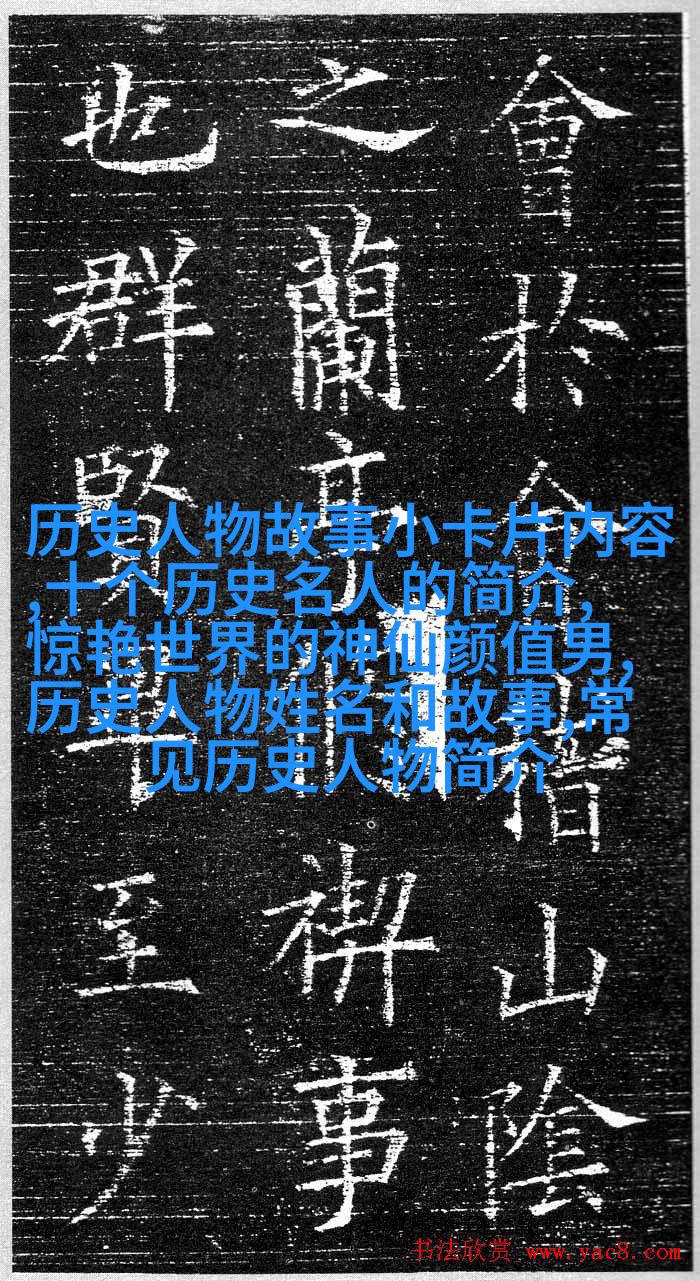 會於會稽山陰
之蘭亭脩禊事
也群賢畢至少
历史人物故事小卡片内容
,十个历史名人的简介,
惊艳世界的神仙颜值男,
历史人物姓名和故事,常
见历史人物简介
书法欣赏 www.yac8.com